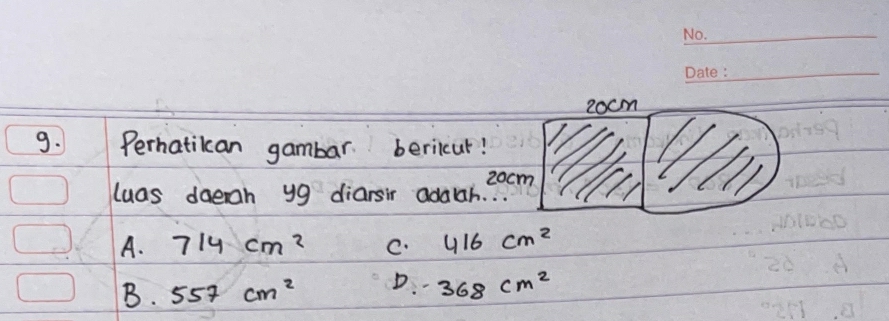 No.
Date :
20cm
9. Perhatikan gambar berikut!
luas daerah yg diarsir adalah... 20cm
A. 714 cm² C. 416 cm²
B. 557 cm² D. 368 cm²